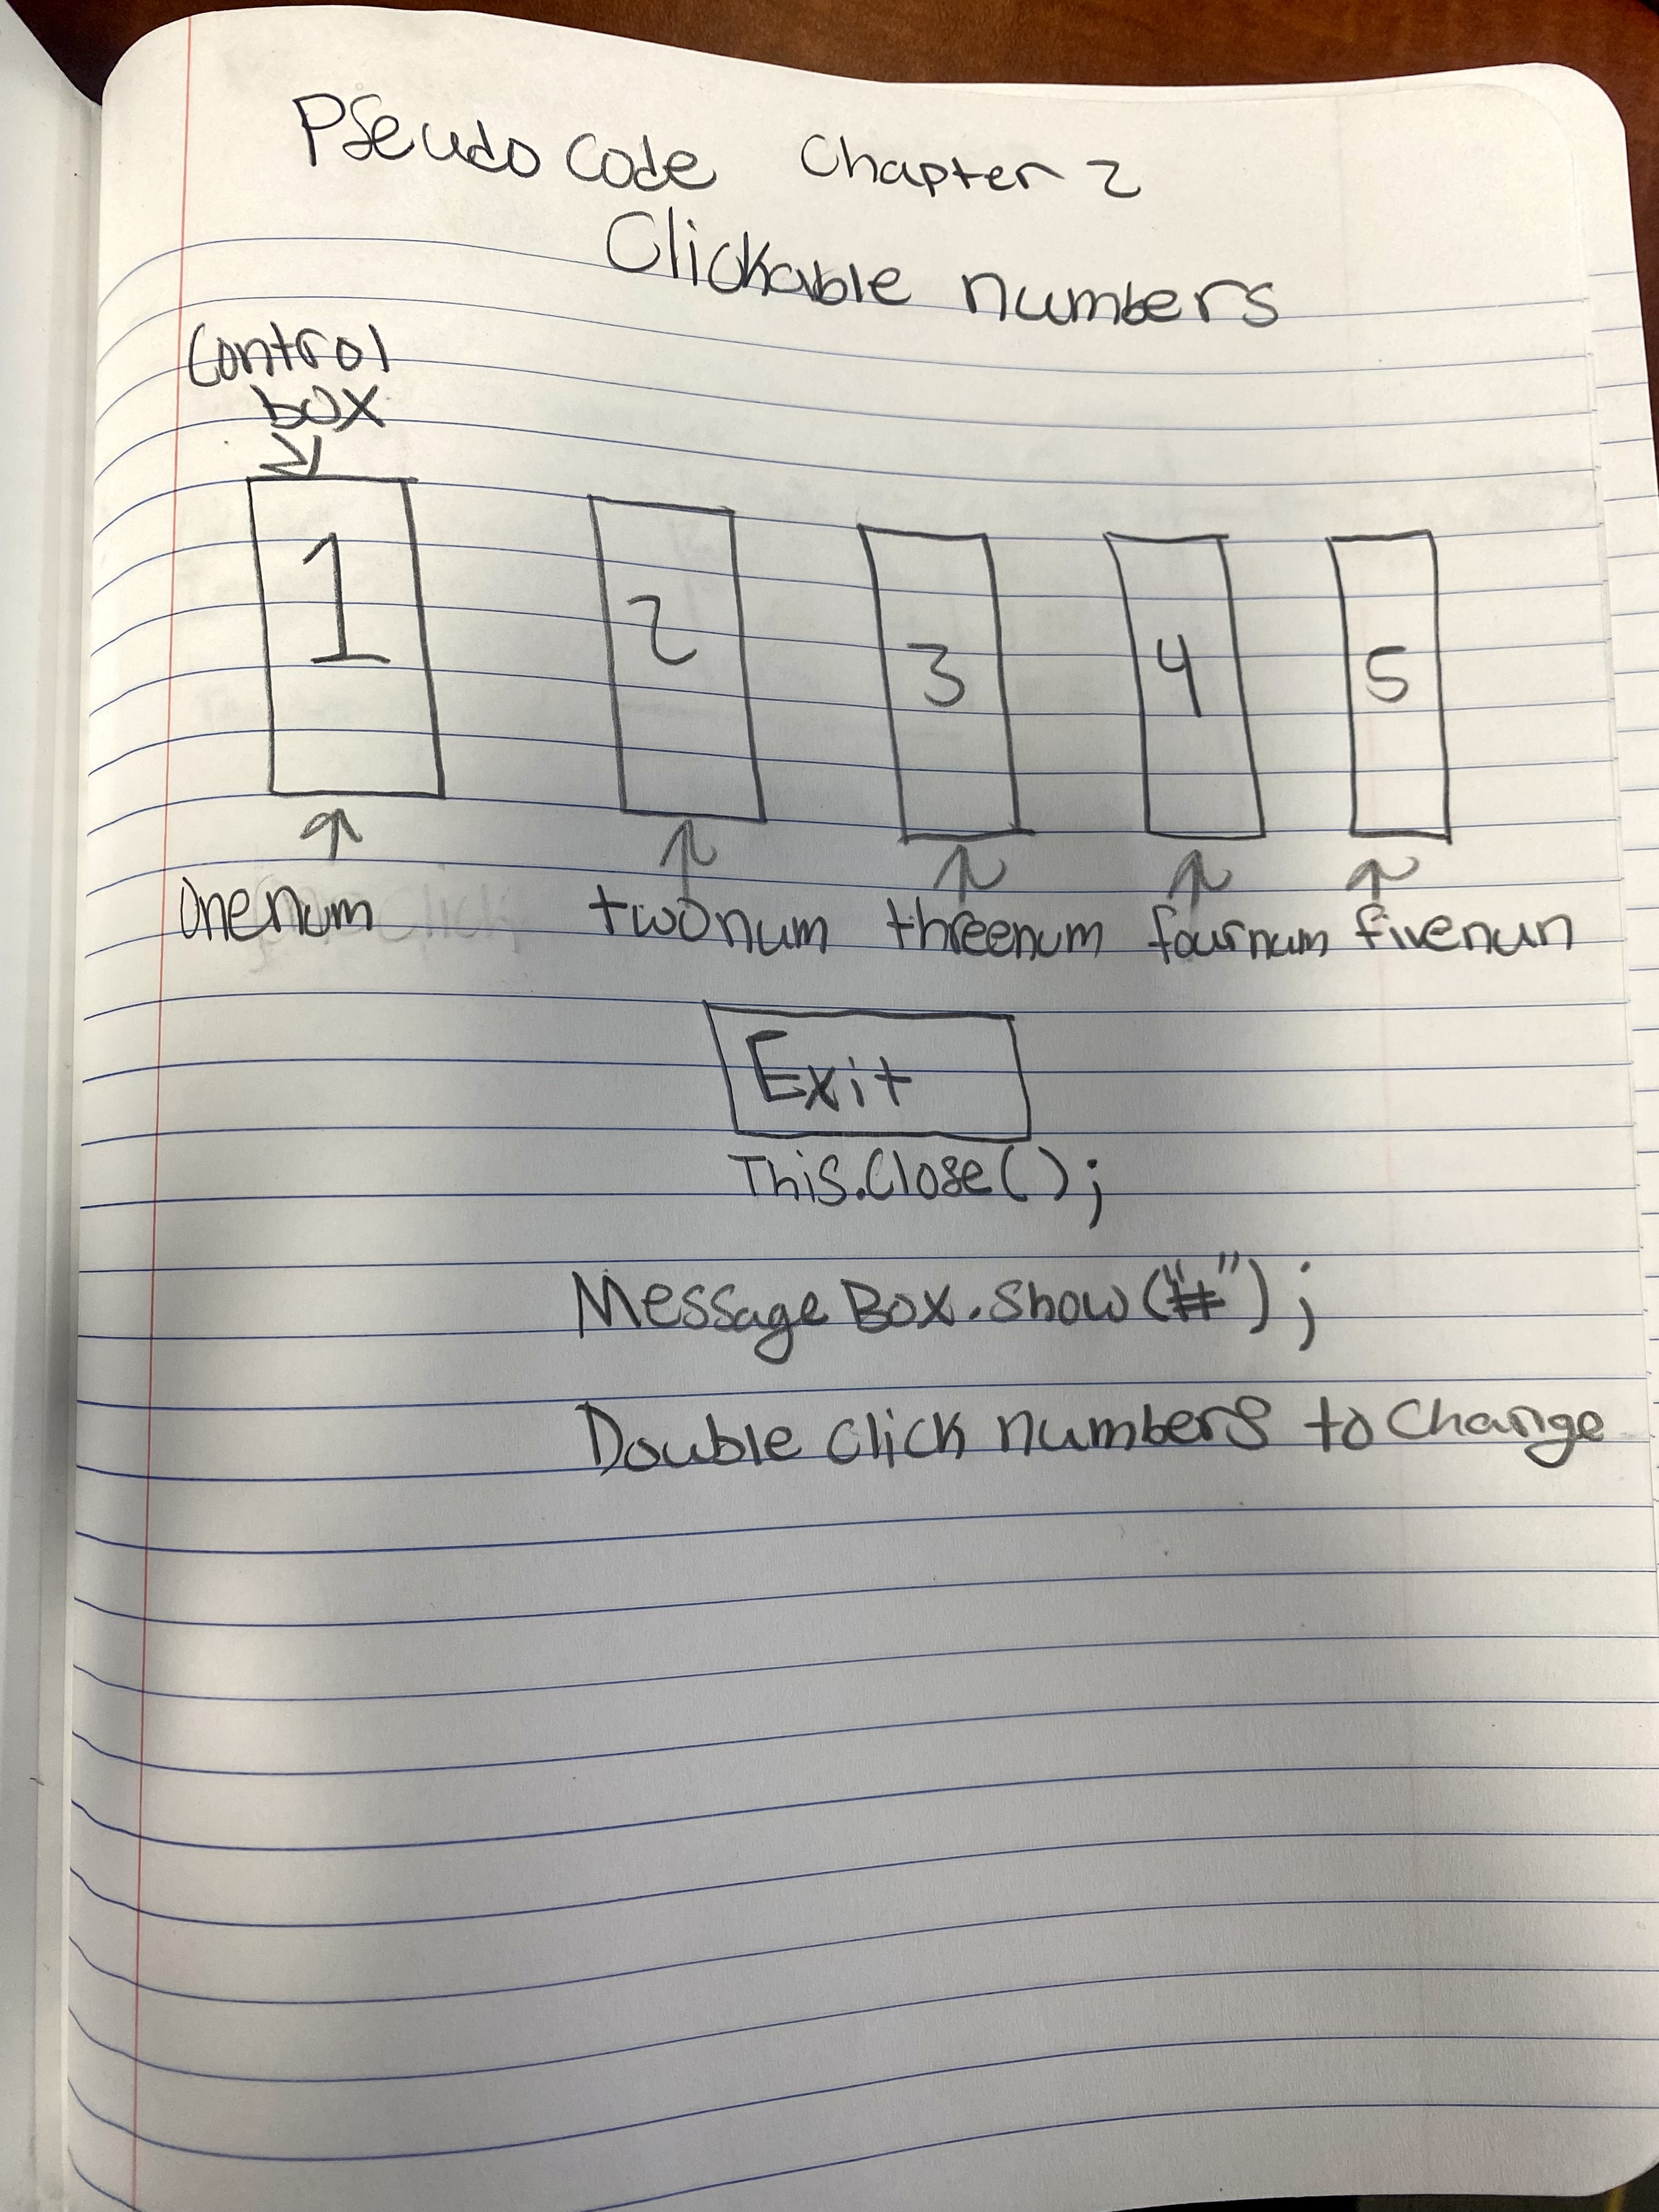 Pseudo Code Chapter 2
Clickable numbers
Control
box
1 2 3 4 5
Onenum twonum threenum fournum fivenun
Exit
This.Close();
MessageBox.Show("#");
Double click numbers to Change